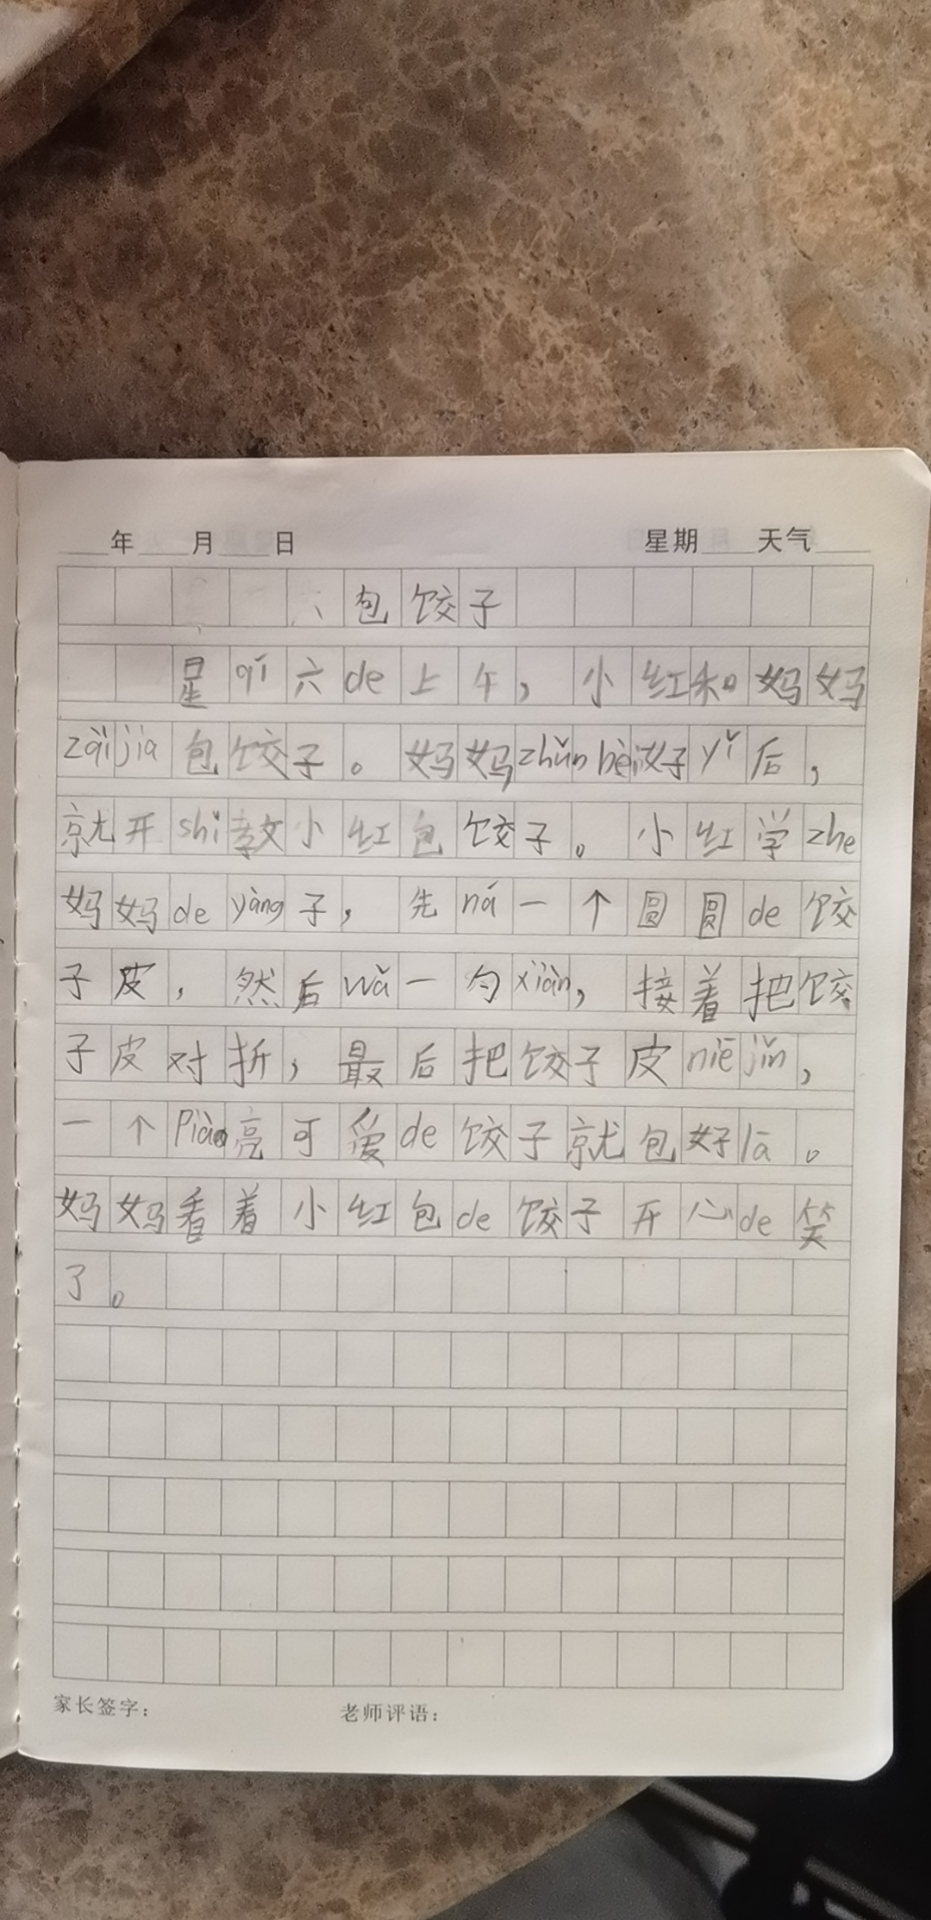 年 月 日 星期 天气
包饺子
星qī六de上午，小红和妈妈
zàijiā包饺子。妈妈zhǔnbèi好yǐ后，
就开shǐ教小红包饺子。小红学zhe
妈妈de yàng子，先ná一个圆圆de饺
子皮，然后wā一勺xiàn，接着把饺
子皮对折，最后把饺子皮niējǐn，
一个Piào亮可爱de饺子就包好lā。
妈妈看着小红包de饺子开心de笑
了。
家长签字： 老师评语：